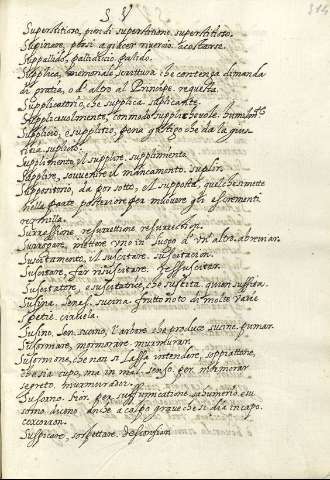 S V
314
Superstitioso, pien di superstitione. superstitioso.
Supinare, porsi a giacer riverso. acostarse.
Suppallido, pallidiccio. palido.
Supplica, memoriale, scrittura che contenga dimanda
di gratia, o d'altro al Principe. requesta.
Supplicatorio, che supplica. suplicante.
Supplicevolmente, con modo supplichevole.
Supplicio, e supplitio, pena gastigo che dà la gius
titia. suplicio.
Supplimento, il supplire. supplimiento.
Supplire, sovvenire al mancamento. suplir.
Suppositorio, da por sotto, el supposta, quel che si mette
nella parte posteriore per muovere gli escrementi.
Surressione, resurettione. resurection.
Surrogare, mettere uno in luogo d'un altro.
Suscitamento, il suscitare. suscitacion.
Suscitare, far risuscitare. Ressusciter.
Suscitatore, e suscitatrice, che suscita. quien suscita.
Susina, Senes. sucina. frutto noto di molte varie
spetie. ciruela.
Susino, Sen. sucino, l'arbore che produce susine.
Susornare, mormorare. murmurar.
Susornione, che non si lassa intendere, soppiattone,
che sia cupo, ma in mal senso. per mormorar
segreto. murmurador.
Susorno. hor per suffumicatione. sahumerio.
como dicono anche a colpo grave che si dà in capo.
Suspicare, sospettare.